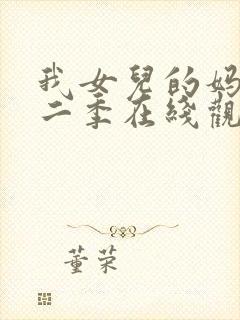 我女兒的媽
二季在綫觀
董荣